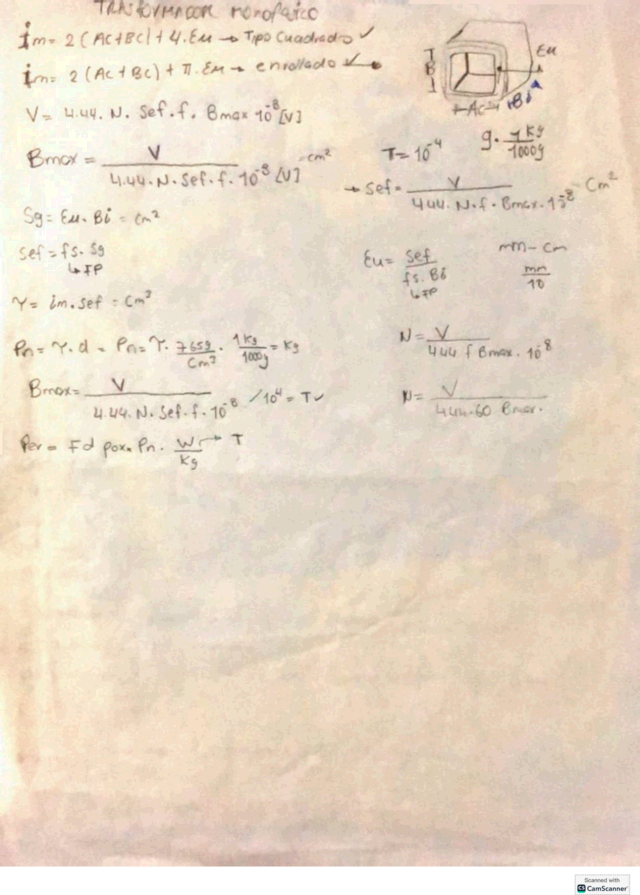 TRANSFORMADOR monofásico
im = 2(AC+BC) + 4.Eu → Tipo Cuadrado ✓
im = 2(AC+BC) + π.Eu → enrollado ✓
Eu
B
Ac
Bi
V = 4.44. N. Sef. f. Bmax 10⁻⁸ [V]
Bmax = V / 4.44. N. Sef. f. 10⁻⁸ [V] = cm²
T = 10⁻⁴
g. 1Kg / 1000g
→ Sef = V / 4.44. N. f. Bmax. 10⁻⁸ = Cm²
Sg = Eu. Bi = cm²
Sef = fs. Sg
↳ FP
Eu = Sef / fs. Bi
↳ FP
mm - cm
mm / 10
γ = im. sef = Cm²
Pn = γ. d = Pn = γ. 7.65g / Cm². 1Kg / 1000g = Kg
N = V / 4.44 f Bmax. 10⁻⁸
Bmax = V / 4.44. N. Sef. f. 10⁻⁸ / 10⁴ = T ✓
N = V / 4.44.60 Bmax.
Per = Fd Pn. W / Kg → T